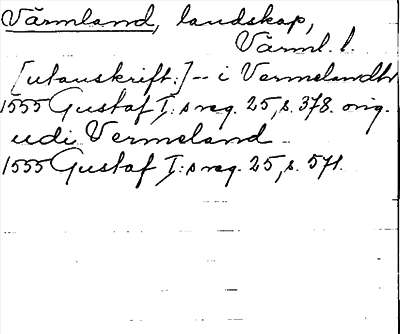 Värmland, landskap,
Värml. l.
[utanskrift:] -- i Vermelandh
1555 Gustaf I:s reg. 25, s. 378. orig.
udi Vermeland
1555 Gustaf I:s reg. 25, s. 571.